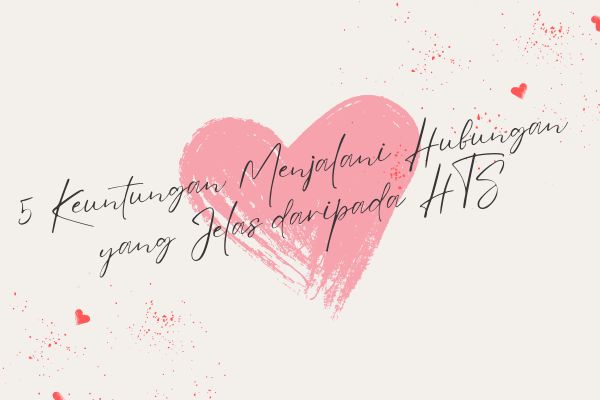 5 Keuntungan Menjalani Hubungan
yang Jelas daripada HTS